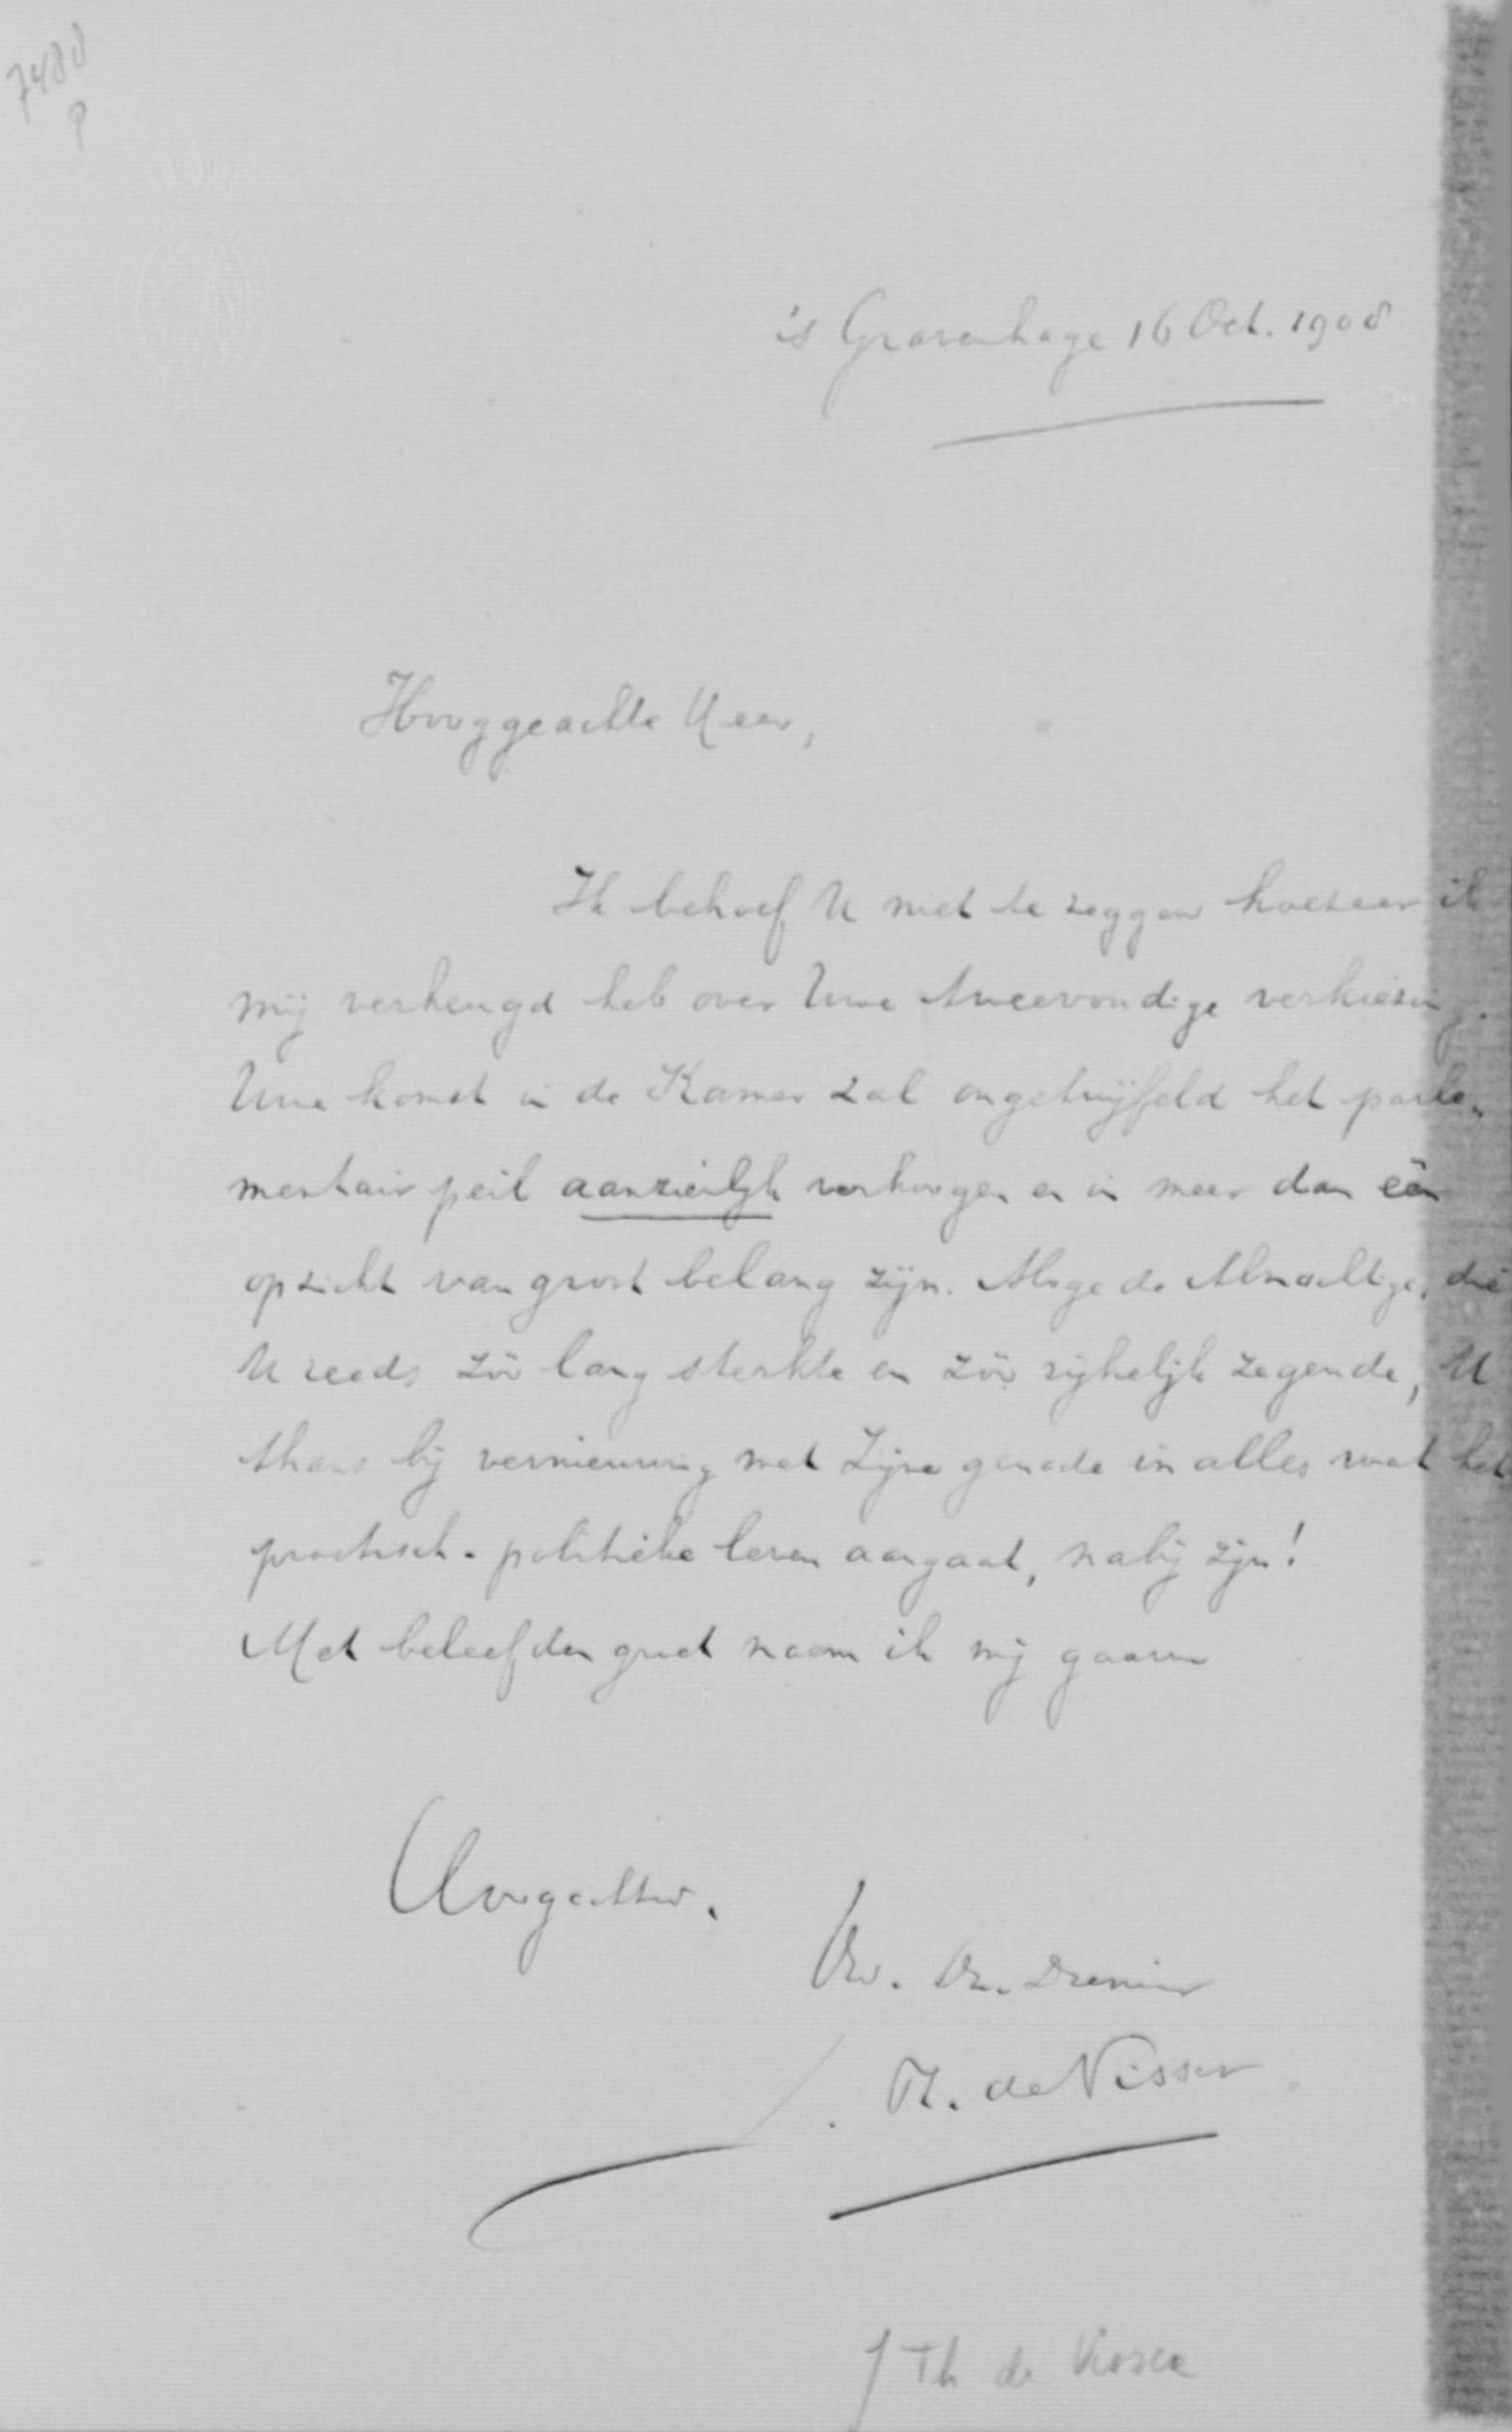 7480
's Gravenhage 16 Oct. 1908
Hooggeachte Heer,
Ik behoef U niet te zeggen hoezeer ik
mij verheugd heb over Uwe tweevoudige verkiezing.
Uwe komst in de Kamer zal ongetwijfeld het parle-
mentair peil aanzienlijk verhoogen en in meer dan één
opzicht van groot belang zijn. Moge de Almachtige, die
U reeds zóó lang sterkte en zóó rijkelijk zegende, U
thans bij vernieuwing met Zijne genade in alles wat het
practisch-politieke leven aangaat, nabij zijn!
Met beleefden groet noem ik mij gaarne
Hoogachtend.
Uw. Dr. Dienaar
J. Th. de Visser
J Th de Visser